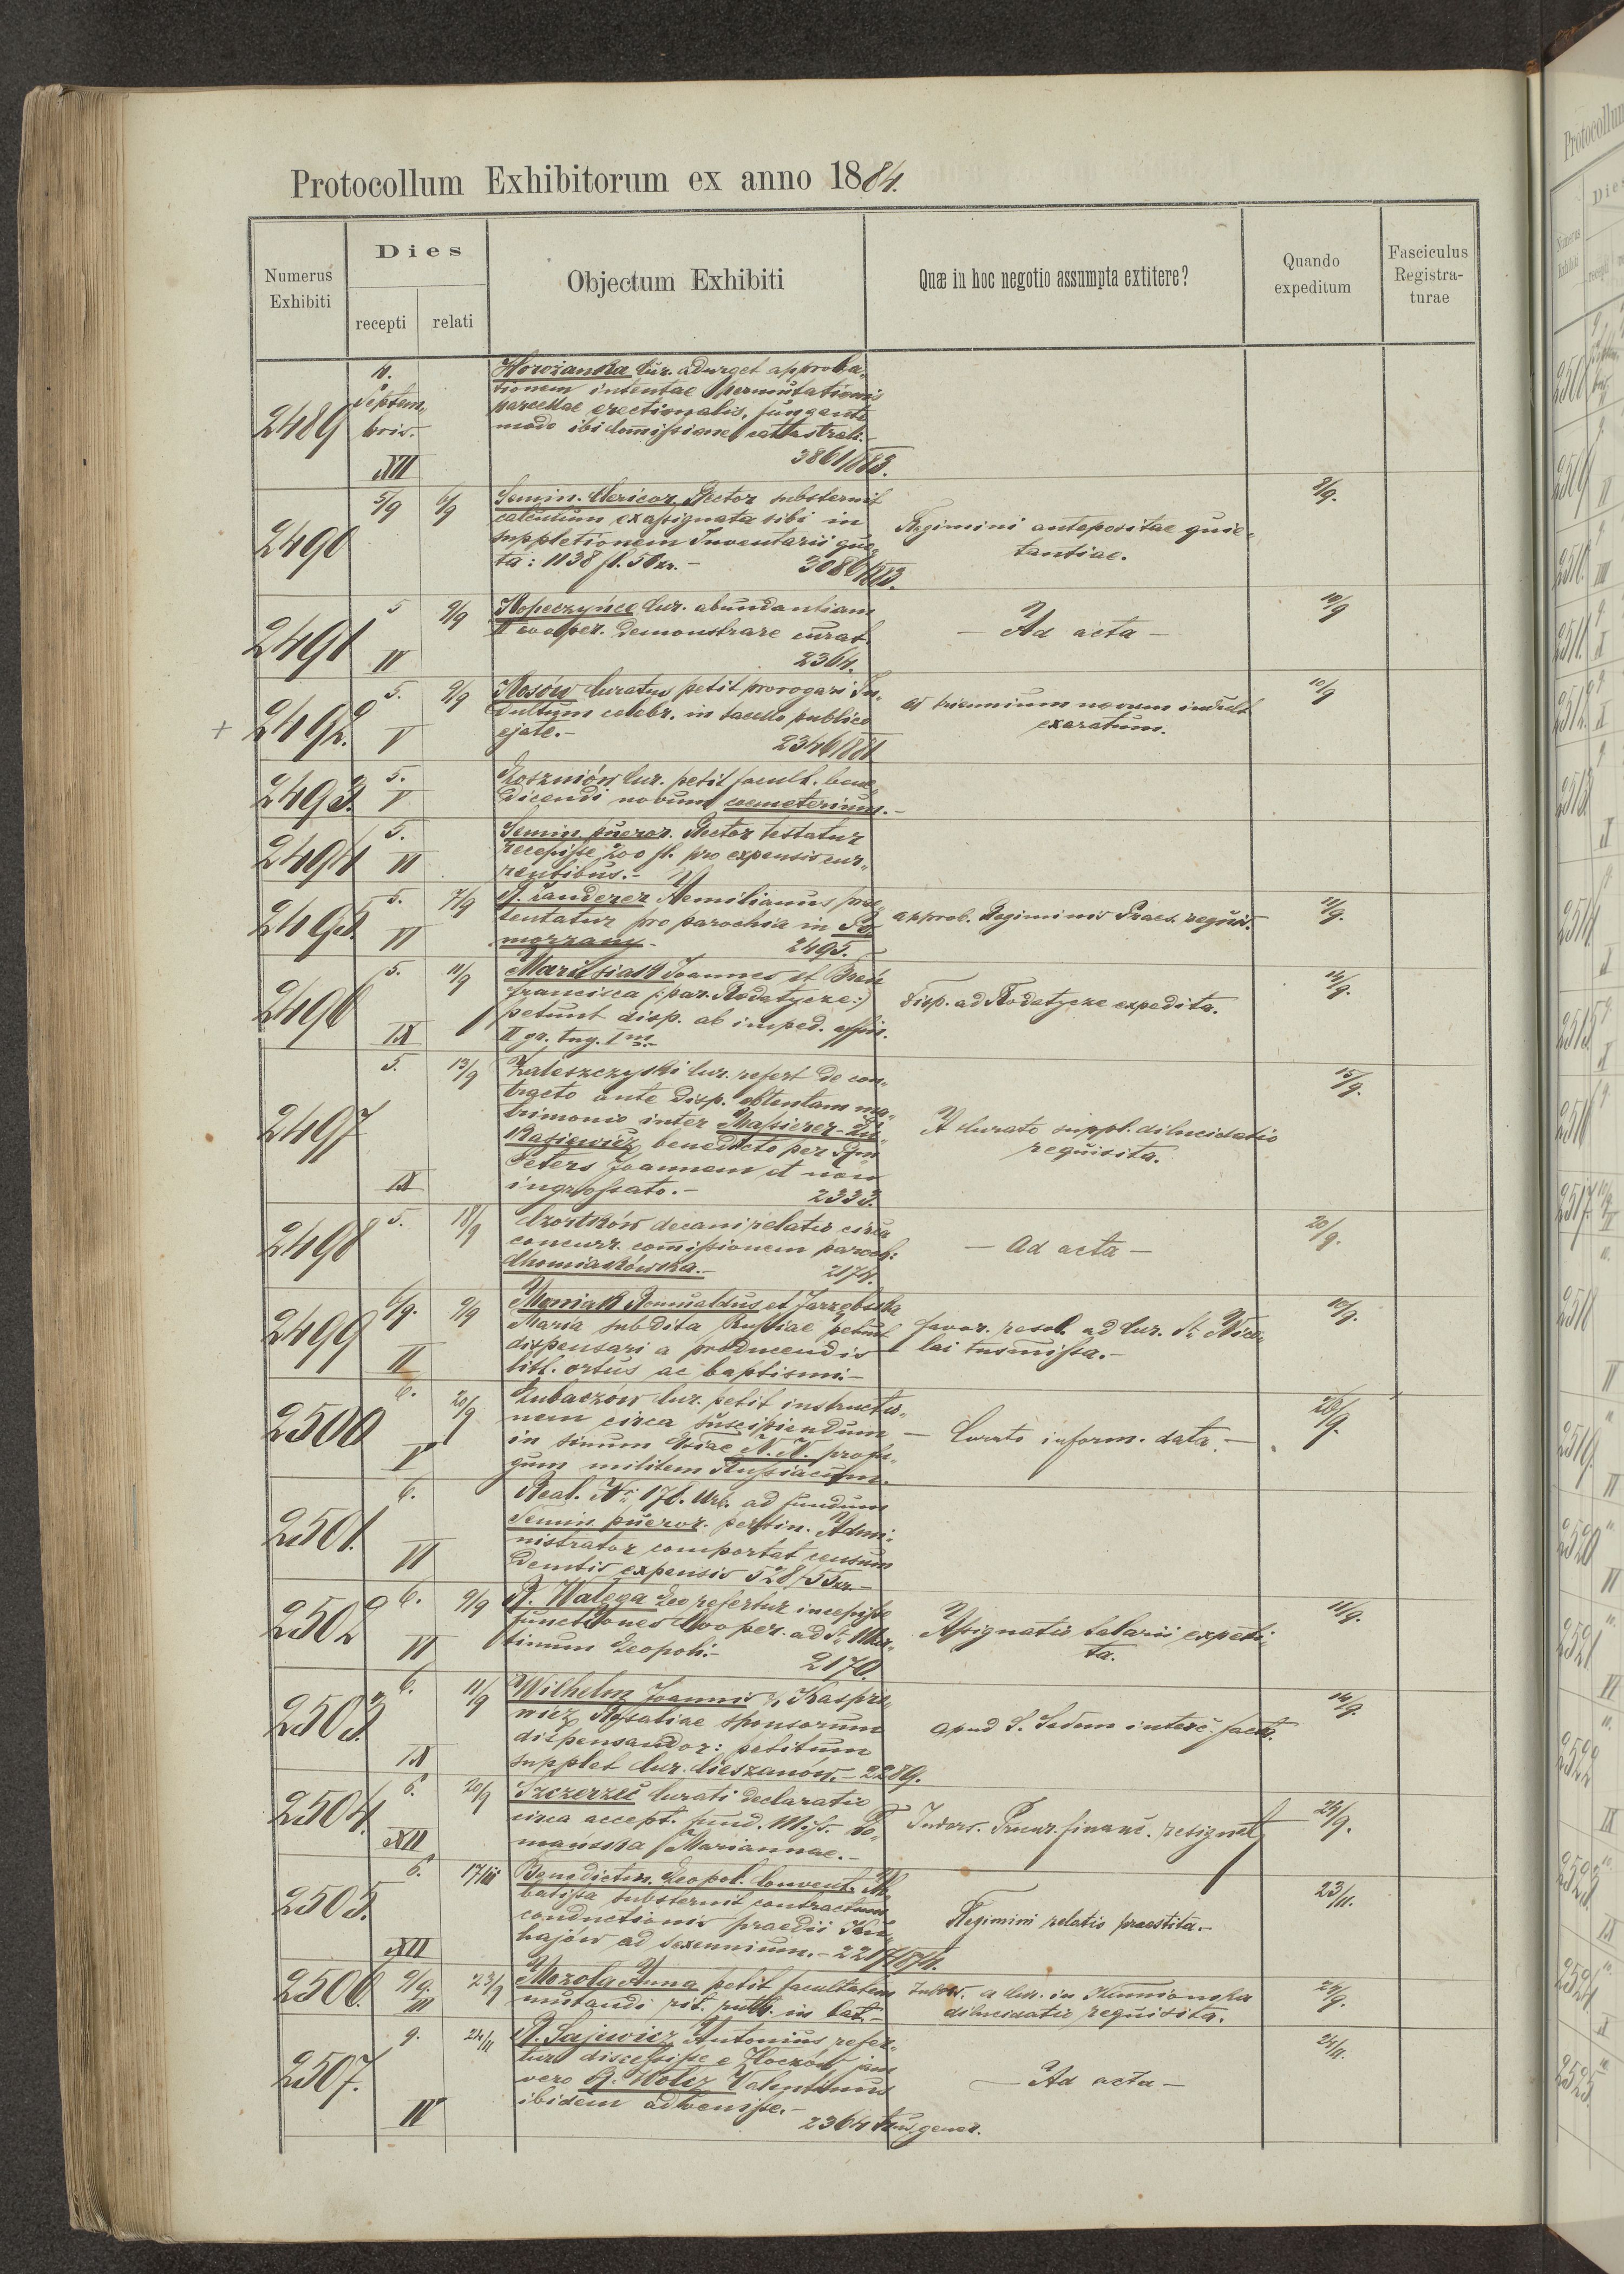 Protocollum Exhibitorum ex anno 1884.
Numerus Exhibiti
Dies
recepti
relati
Objectum Exhibiti
Quæ in hoc negotio assumpta extitere?
Quando expeditum
Fasciculus Registra-
turae
2489
4.
Septem-
bris.
XII
Horożanka Cur. adurget approba-
tionem intentae permutationis
parcellae erectionalis, fungente
modo ibi Comissione catastrali.-
3861/883.
2490
5/9
6/9
Semin. Clericor. Rector substernit
calculum ex assignata sibi in
suppletionem Inventarii quo-
ta: 1138 fl. 50 xr. -
3080/883.
Regimini antepositae quie-
tantiae.
8/9.
2491
5
IV
9/9
Kopeczyńce Cur. abundantiam
II cooper. demonstrare curat.
2364.
- Ad acta -
10/9
+ 2492.
5.
V
9/9
Kosów Curatus petit prorogari In-
dultum celebr. in sacello publico
ejate.-
2346/881
Ad triennium novum indult.
exaratum.
10/9
2493.
5.
V
Kosznión Cur. petit facult. bene-
dicendi novum coemeterium.-
2494
5.
VI
Semin. pueror. Rector testatur
recepisse 200 fl. pro expensis cur-
rentibus.-
2495.
5.
VI
7/9
R. Tanderer Aemilianus prae-
sentatur pro parochia in Po-
morzany.
2495.
approb. Regiminis Praes. requis.
11/9.
2496
5.
IX
11/9
Marusiak Joannes et
Francisca (: par. Rodatycze:)
petunt disp. ab imped. affin.
II gr. tng. Im.-
Disp. ad Rodatycze expedita.
14/9.
2497
5.
IX
13/9
Zaleszczyki Cur. refert de con-
tracto ante disp. obtentam ma-
trimonio inter
benedicto per
Peters Joannem et non
ingrossato.-
2333.
A Curato suppl. dilucidatio
requisita.
15/9.
2498
5.
18/9
Czortków decani relatio circa
concurr. comissionem paroch:
Chomiakówka.-
2174.
- Ad acta -
20/9.
2499
6/9.
II
9/9
Moniak Romualdus et Jarzębska
Maria subdita Russiae petunt
dispensari a producendis
litt. ortus ac baptismi.-
favor. resol. ad Cur. St. Nico-
lai tnsmissa.-
10/9.
2500
6.
V
20/9
Lubaczów Cur. petit instructio-
nem circa suscipiendum
in sinum Eccliae N. N. profu-
gum militem Russiacum.
- Curato inform. data. -
26/9.
2501.
6.
VI
Real. Nr. 178. Urb. ad fundum
Semin. pueror. pertin. Admi-
nistrator comportat censum
demtis expensis 528/55 xr.-
2502
6.
VI
9/9
R. Watega Leo refertur incepisse
functiones Cooper. ad St. Mar-
tinum Leopoli.-
2170.
Assignatio salarii expedi-
ta.
11/9.
2503
6.
IX
11/9
Wilhelm Joannis & Kaspro-
wicz Rosaliae sponsorum
dispensandor: petitum
supplet Cur. Cieszanów.- 2289.
apud S. Sedem interc. facta.
14/9.
2504.
6.
XII
20/9
Szczerzec Curati declaratio
circa accept. fund. M. s. Ro-
mańska Mariannae.-
Indors. Procur. financ. resignat.
24/9.
2505.
6.
XII
17/11
Benedictin. Leopol. Convent. Ab-
batissa substernit contractum
conductionis praedii Ku-
hajów ad sexennium.- 2217/874.
Regimini relatio praestita.-
23/11.
2506.
9/9.
III
23/9
Mozola Anna petit facultatem
mutandi rit. ruth. in lat.-
Indors. a Cur. in Kamionka
dilucidatio requisita.
24/9.
2507.
9.
IV
24/11
R. Sajewicz Antonius refer-
tur discessisse e Złoczów, jam
vero R. Wolcz Valentinus
ibidem advenisse.-
2364 tns. gener.
- Ad acta -
24/11.